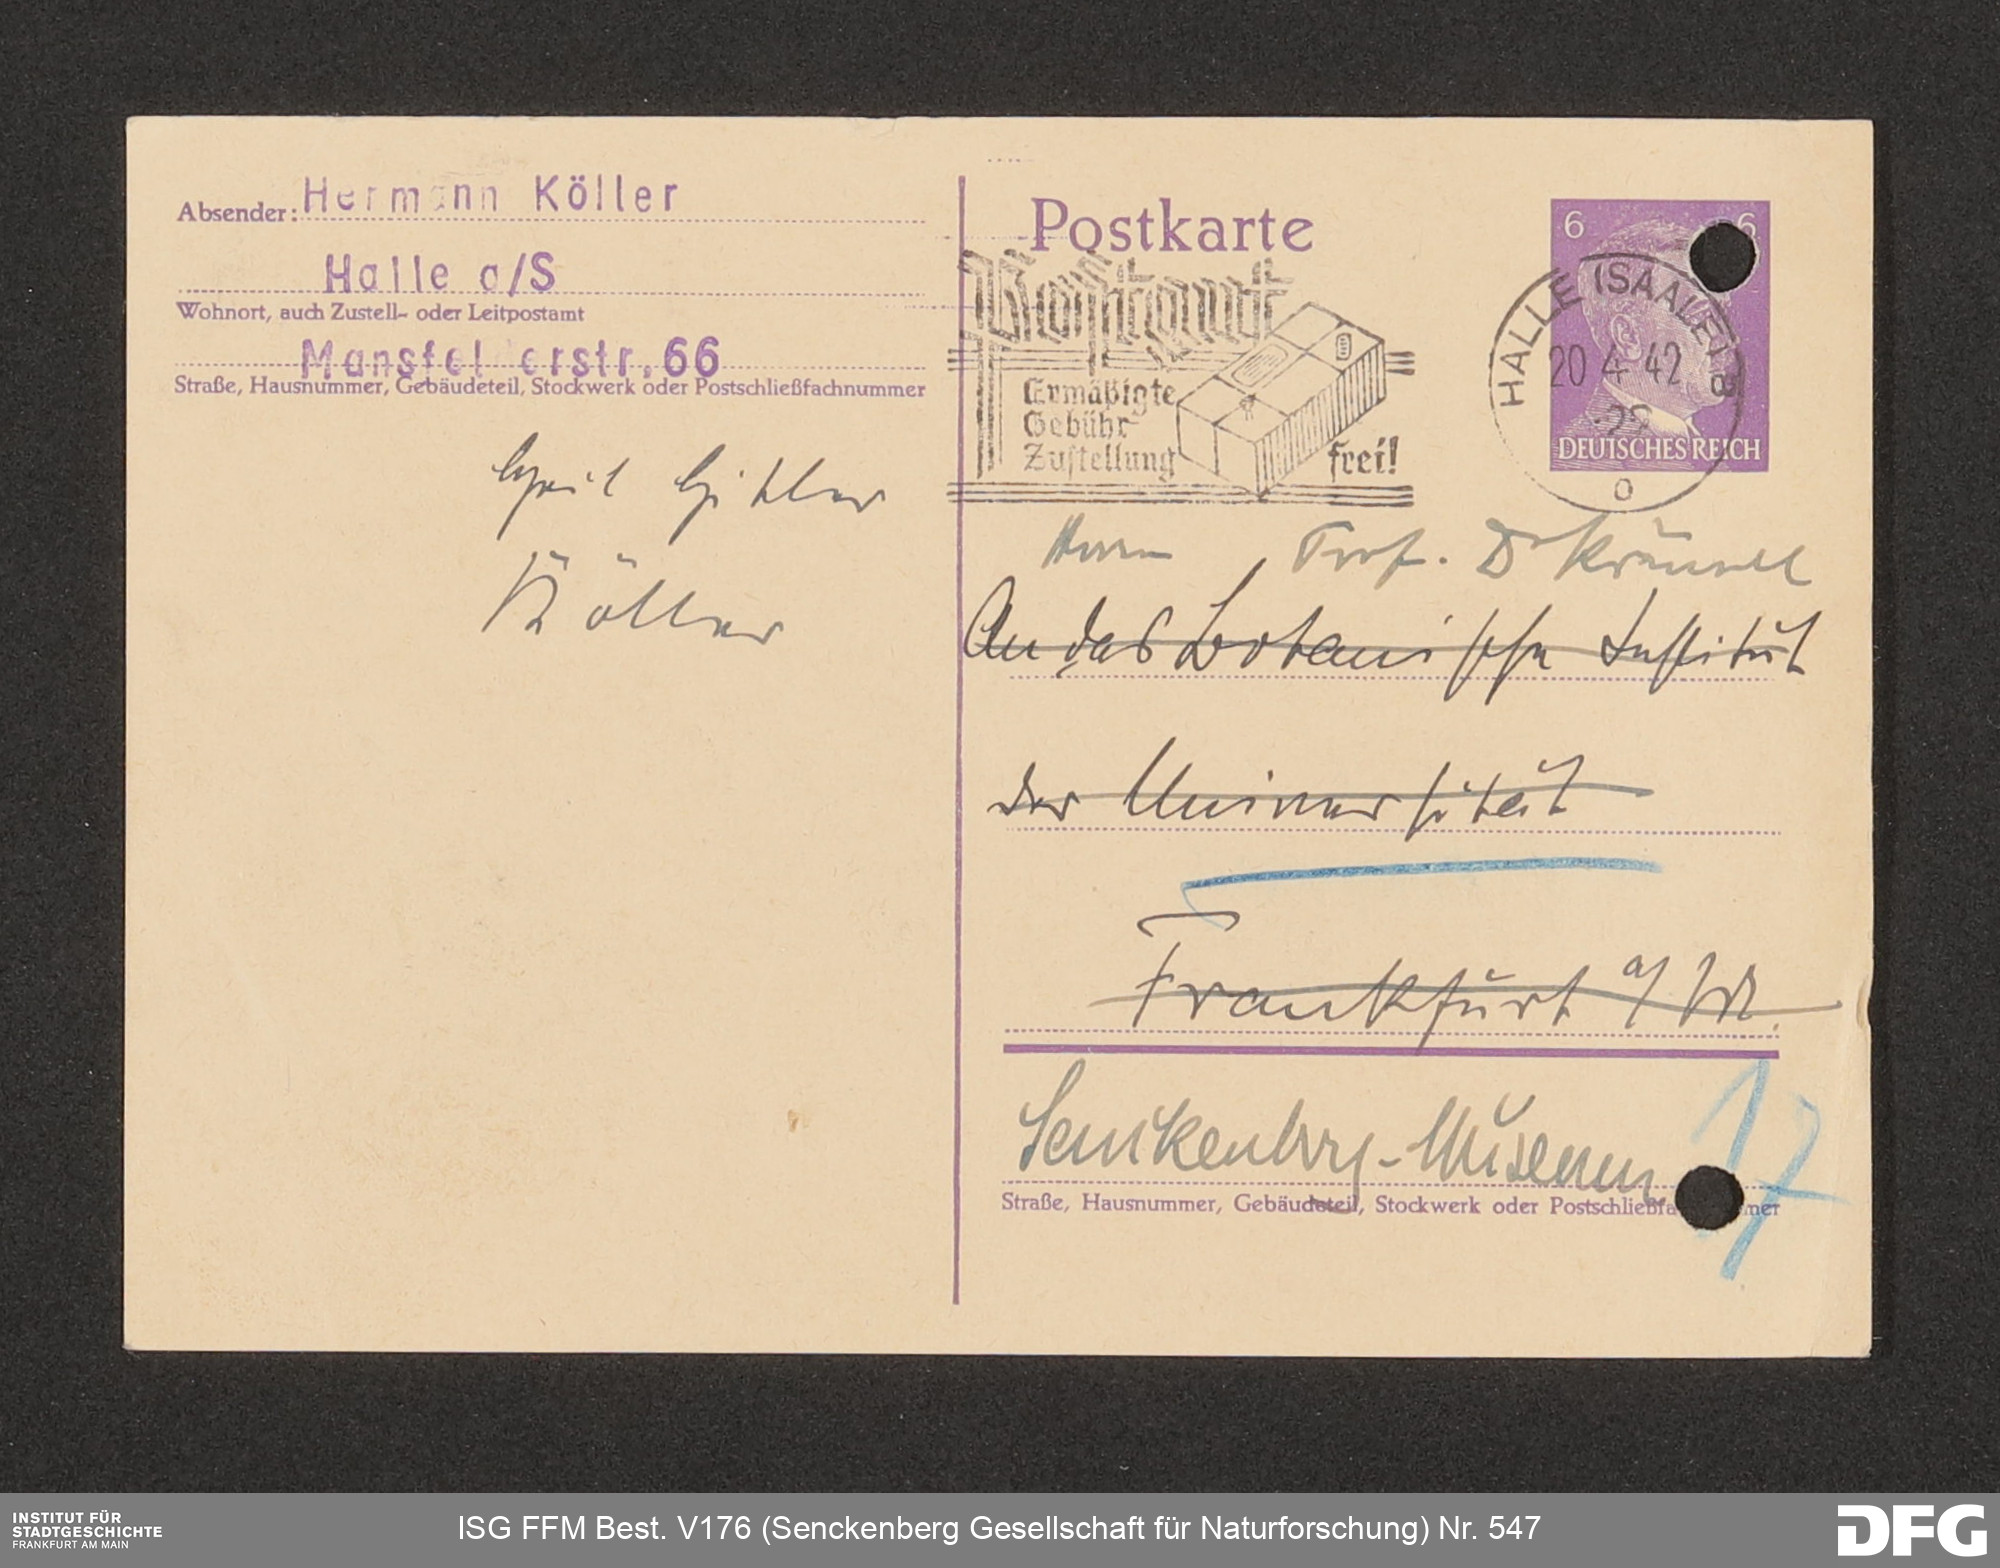 Absender: Hermann Köller
Halle a/S
Wohnort, auch Zustell- oder Leitpostamt
Mansfelderstr. 66
Straße, Hausnummer, Gebäudeteil, Stockwerk oder Postschließfachnummer
Heil Hitler
Köller
Postkarte
Postgut
Ermäßigte
Gebühr
Zustellung frei!
6 6
HALLE (SAALE) 2
20 4 42
DEUTSCHES REICH
Herrn Prof. Dr Kräusel
An das Botanische Institut
der Universität
Frankfurt a/M.
Senckenberg-Museum
Straße, Hausnummer, Gebäudeteil, Stockwerk oder Postschließfa mer
17
INSTITUT FÜR
STADTGESCHICHTE
FRANKFURT AM MAIN
ISG FFM Best. V176 (Senckenberg Gesellschaft für Naturforschung) Nr. 547
DFG